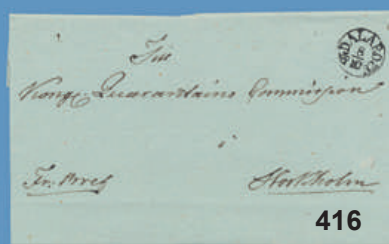 DALARÖ
8
10
Till
Kongl. Quarantains Commission
i
Fr. Bref
Stockholm
416